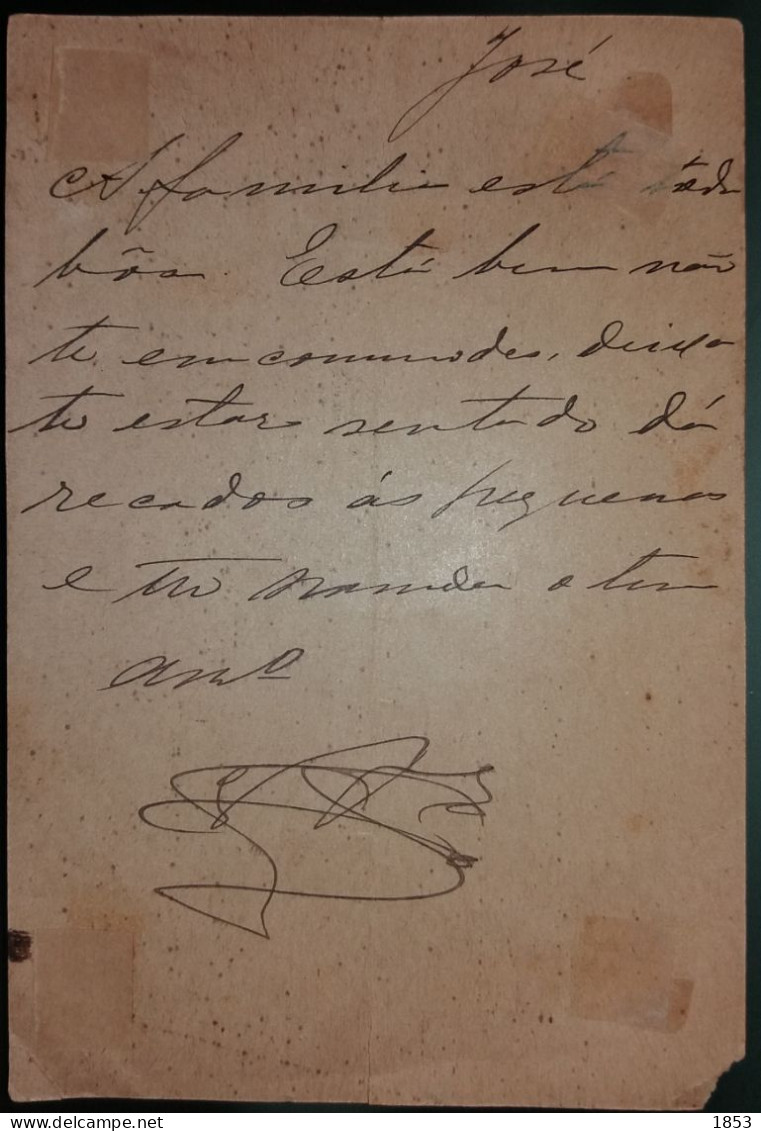 José
A familia está toda
bôa. Está bem não
te emcommodes, deixa
te estar sentado dá
recados ás pequenas
e manda o teu
am.º
1853